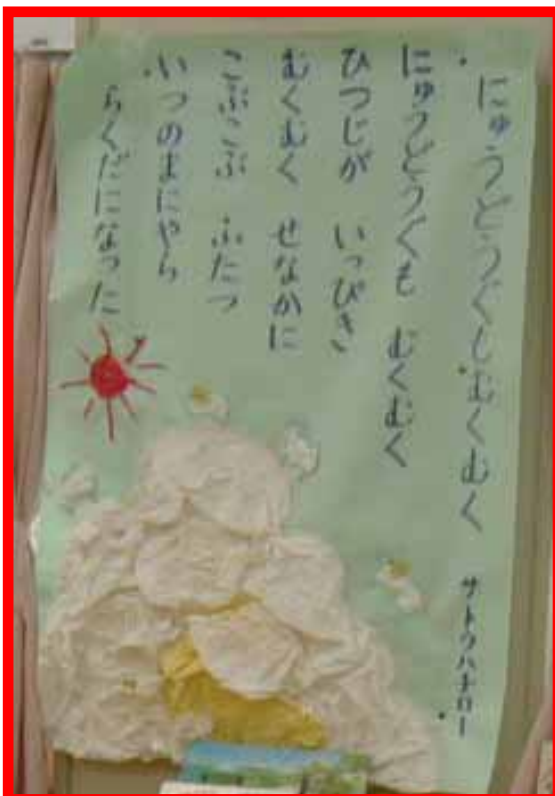 にゅうどうぐもむくむく サトウハチロー
にゅうどうぐも むくむく
ひつじが いっぴき
むくむく せなかに
こぶこぶ ふたつ
いつのまにやら
らくだになった